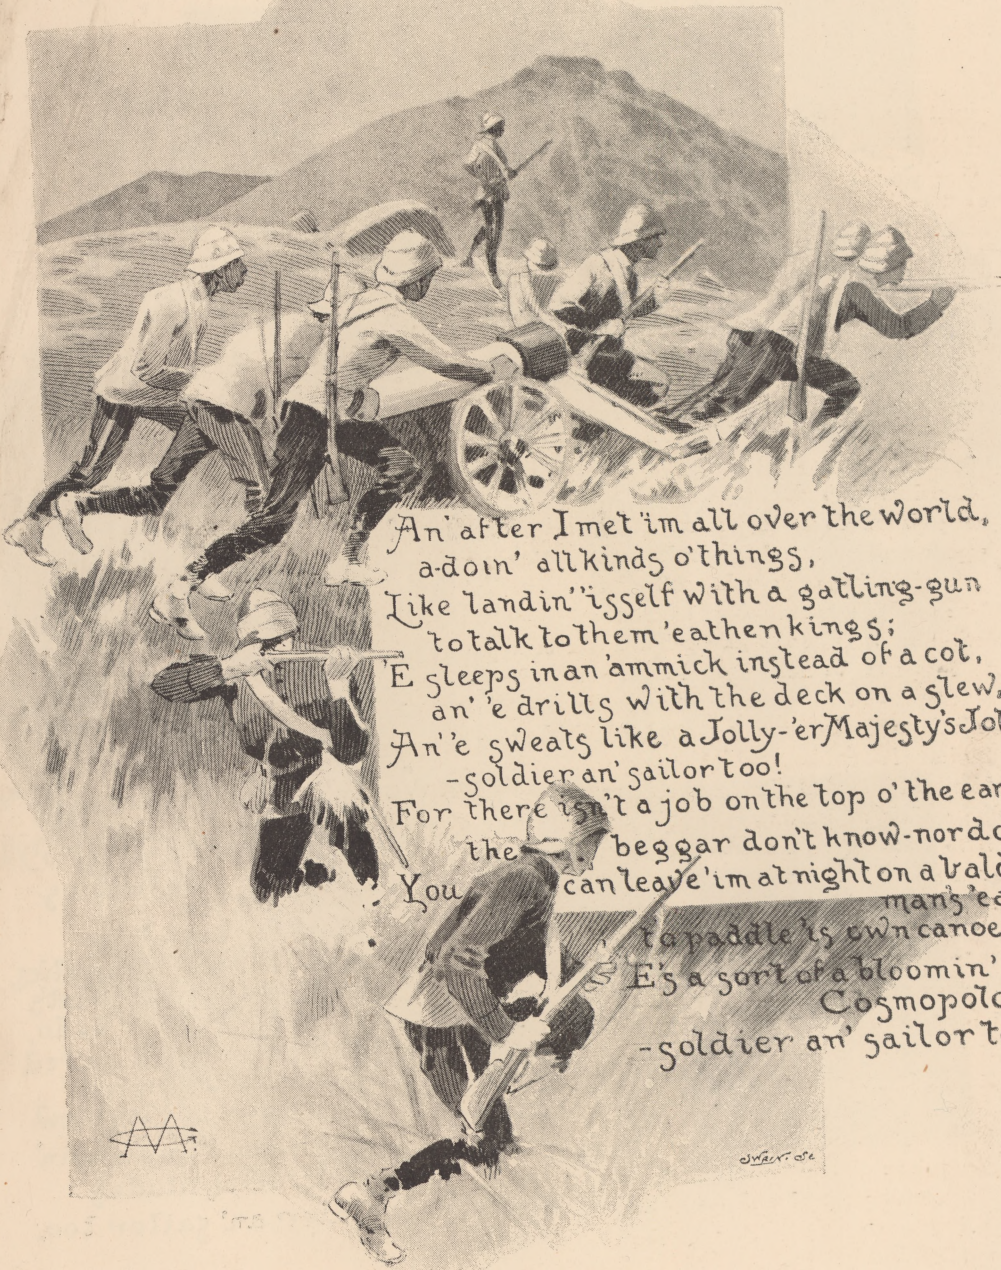 An' after I met 'im all over the world,
a-doin' all kinds o' things,
Like landin' 'isself with a gatling-gun
to talk to them 'eathen kings;
'E sleeps in an 'ammick instead of a cot,
an' 'e drills with the deck on a slew,
An' 'e sweats like a Jolly-'er Majesty's Jol
-soldier an' sailor too!
For there isn't a job on the top o' the ear
the beggar don't know-nor do
You can leave 'im at night on a bald
man's 'ea
to paddle 'is own canoe
'E's a sort of a bloomin'
Cosmopolo
-soldier an' sailor t
SWAIN. Sc